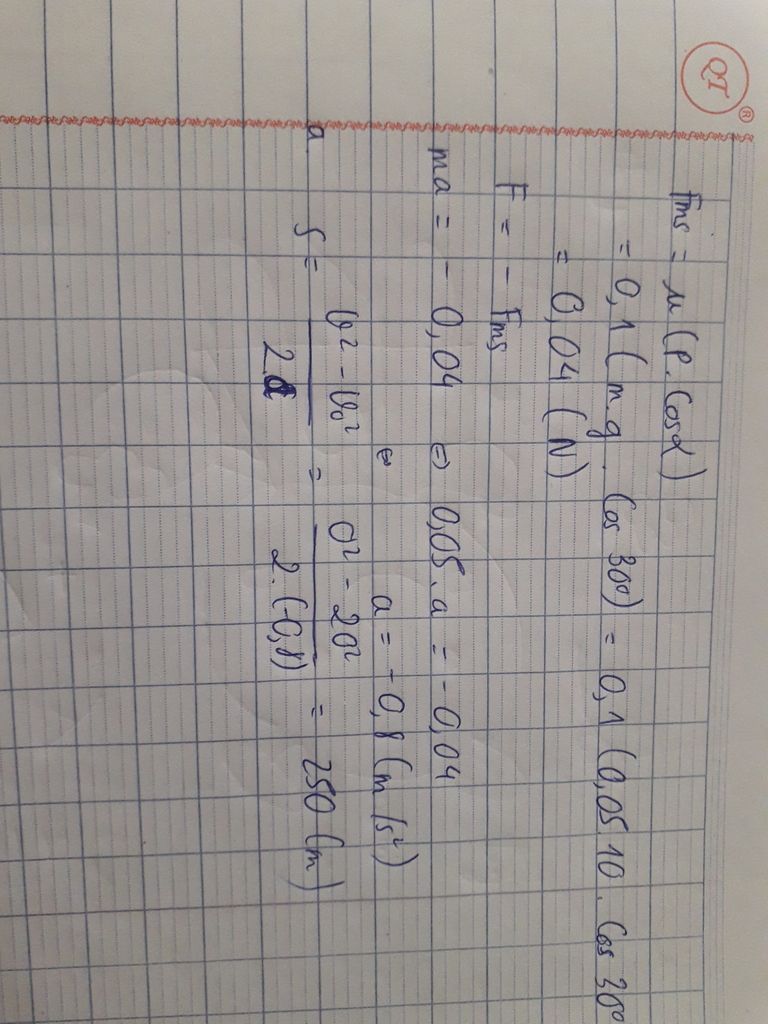 QT ®
Fms = μ (P. Cosα)
= 0,1 ( m.g . Cos 30°) = 0,1 (0,05.10 . Cos 30°
= 0,04 (N)
F = - Fms
ma = - 0,04 ⇔ 0,05.a = - 0,04
⇔ a = - 0,8 (m/s²)
a S = (v² - v₀²)/2.a = (0² - 20²)/2.(-0,8) = 250 (m)